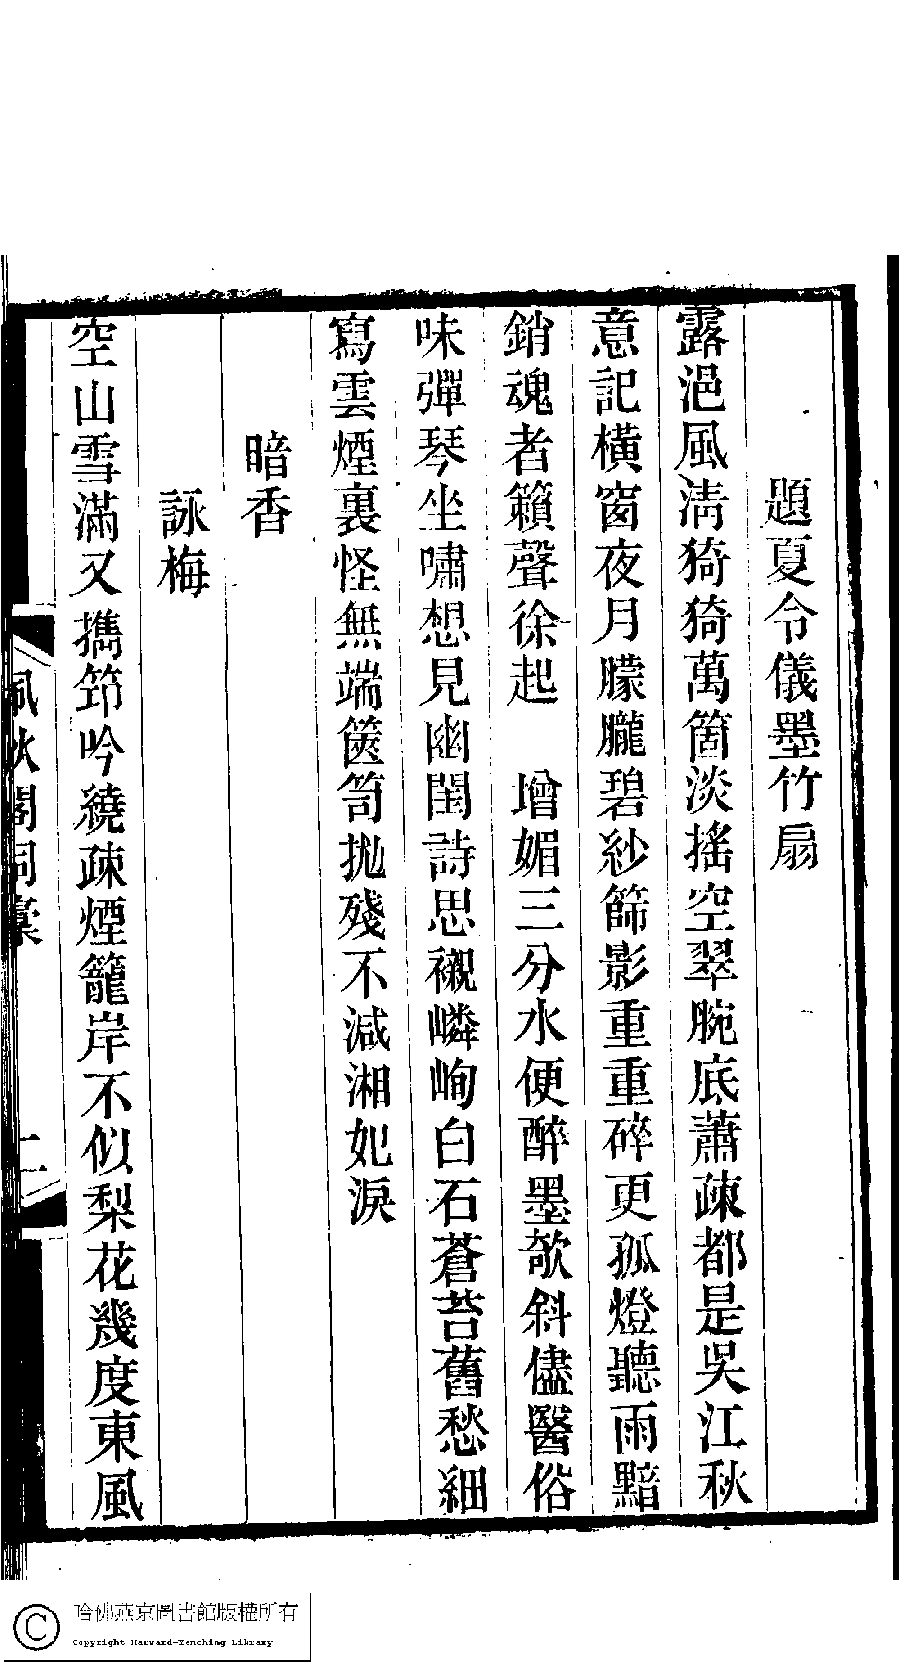 題夏令儀墨竹扇
露浥風淸猗猗萬箇淡搖空翠腕底蕭疎都是吳江秋
意記橫窗夜月朦朧碧紗篩影重重碎更孤燈聽雨黯
銷魂者籟聲徐起　增媚三分水便醉墨欹斜儘醫俗
味彈琴坐嘯想見幽閨詩思襯嶙峋白石蒼苔舊愁細
寫雲煙裏怪無端篋笥拋殘不減湘妃淚
暗香
詠梅
空山雪滿又攜筇吟繞疎煙籠岸不似梨花幾度東風
秋閣詞稾
哈佛燕京圖書館版權所有
Copyright Harvard-Yenching Library